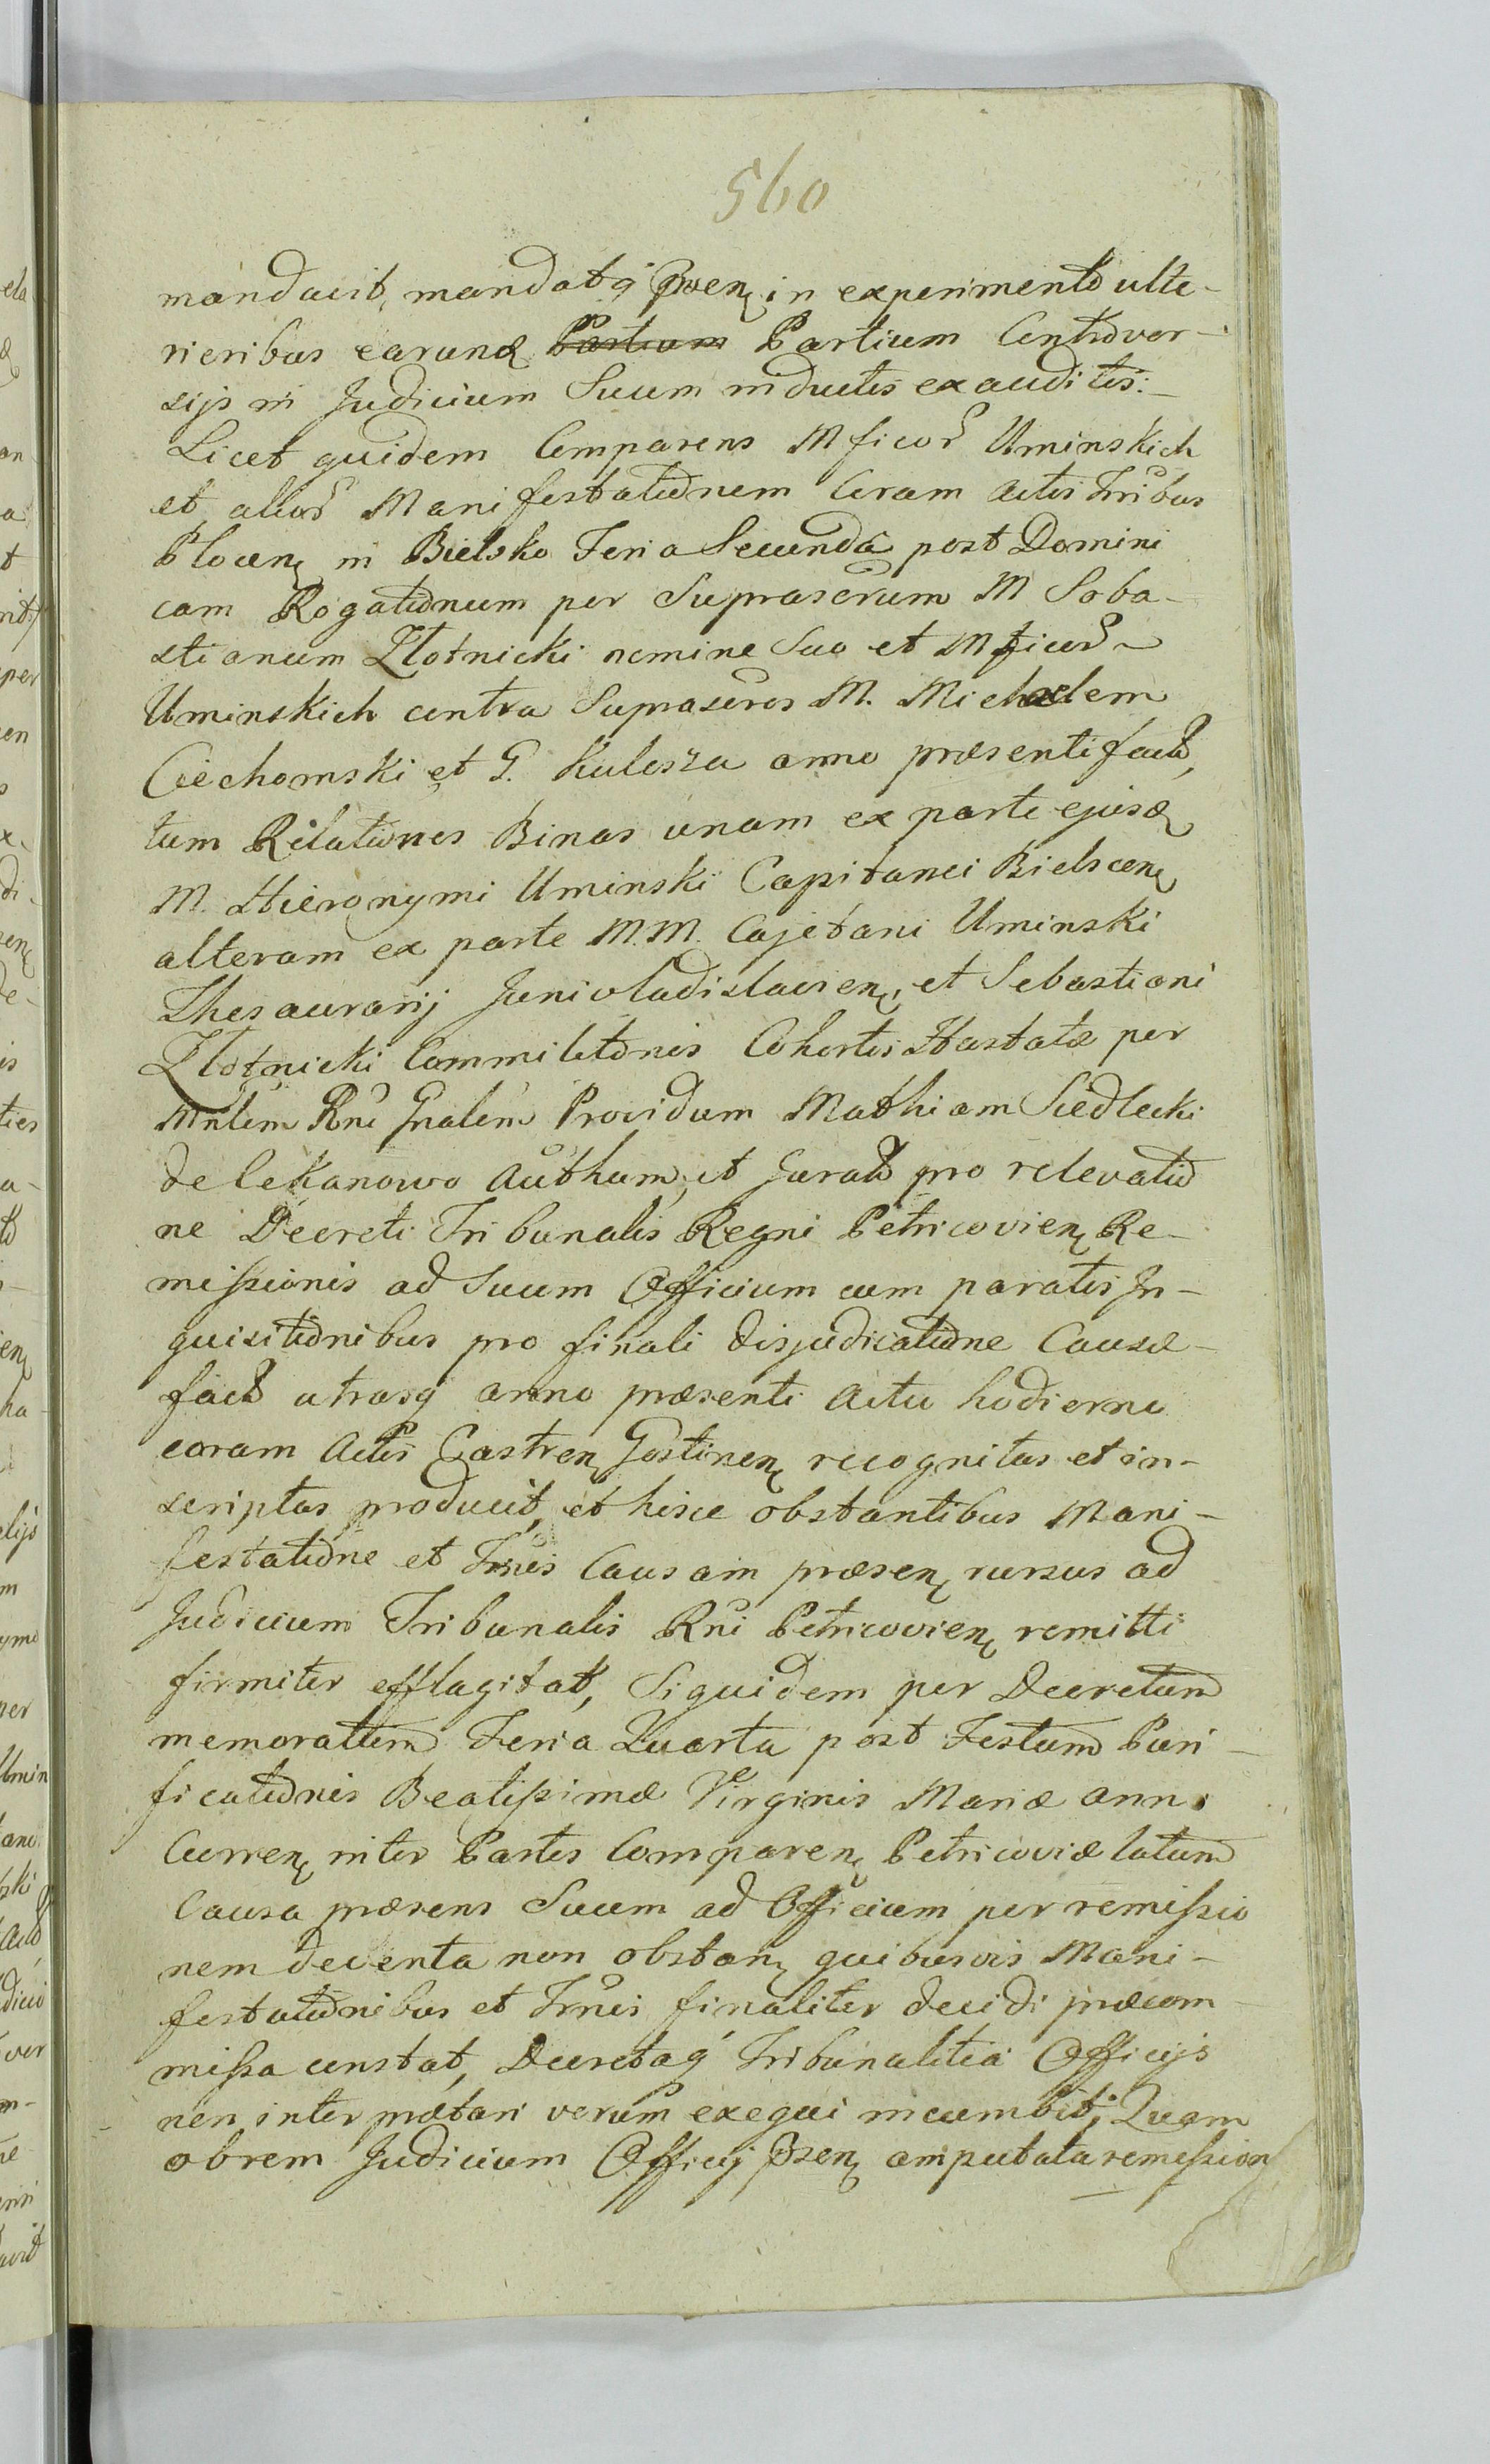 560
mandavit, mandatq́ Præsenꝫ in experimento ulte-
rioribus earund Partium Controver-
sijs in Judicium Suum inductis exauditis:
Licet quidem Comparens Mficor Uminskich
et alior Manifestationem Coram Actis Tribus
Plocenꝫ in Bielsko Feria Secunda post Domini
cam Rogationum per Suprascrum M Seba-
stianum Złotnicki nomine Suo et Mficor
Uminskich contra Suprascros M. Michaelem
Ciechomski et G. Kulesza anno præsenti fact,
tum Relationes Binas unam ex parte ejusd
M. Hieronymi Uminski Capitanei Bielscenꝫ
alteram ex parte M.M. Cajetani Uminski
Thesaurarij Junivladislavienꝫ, et Sebastiani
Złotnicki Commilitonis Cohortis Hastatæ per
Mnlem Rni Gnalem Providum Mathiam Siedlecki
de Lekanowo Authum, et Jurat pro relevatio
ne Decreti Tribunalis Regni Petricovienꝫ Re-
missionis ad Suum Officium cum paratis In-
quisitionibus pro finali disjudicatione Causæ
fact utrasq́ anno præsenti Actu hodierno
coram Actis Castrenꝫ Gostinenꝫ recognitas et in-
scriptas producit, et hisce obstantibus Mani-
festatione et Trnis Causam præsenꝫ rursus ad
Judicium Tribunalis Rni Petricovienꝫ remitti
firmiter efflagitat, Siquidem per Decretum
memoratum Feria Quarta post Festum Puri-
ficationis Beatissimæ Virginis Mariæ anno
Currenꝫ inter Partes Comparenꝫ Petricoviæ latum
Causa præsens Suum ad Officium per remissio
nem deventa non obstanꝫ quibusvis Mani-
festationibus et Trnis finaliter decidi præcom-
missa constat, Decretaq́ Tribunalitia Officijs
non interprætari verum exequi incumbit; Quam
obrem Judicium Officij Præsenꝫ amputata remission